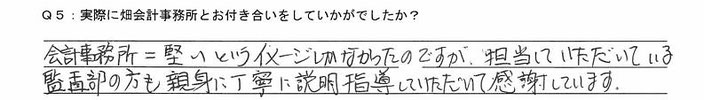 Ｑ５：実際に畑会計事務所とお付き合いをしていかがでしたか？
会計事務所＝堅いというイメージしかなかったのですが、担当していただいている
監査部の方も親身に丁寧に説明指導していただいて感謝しています。